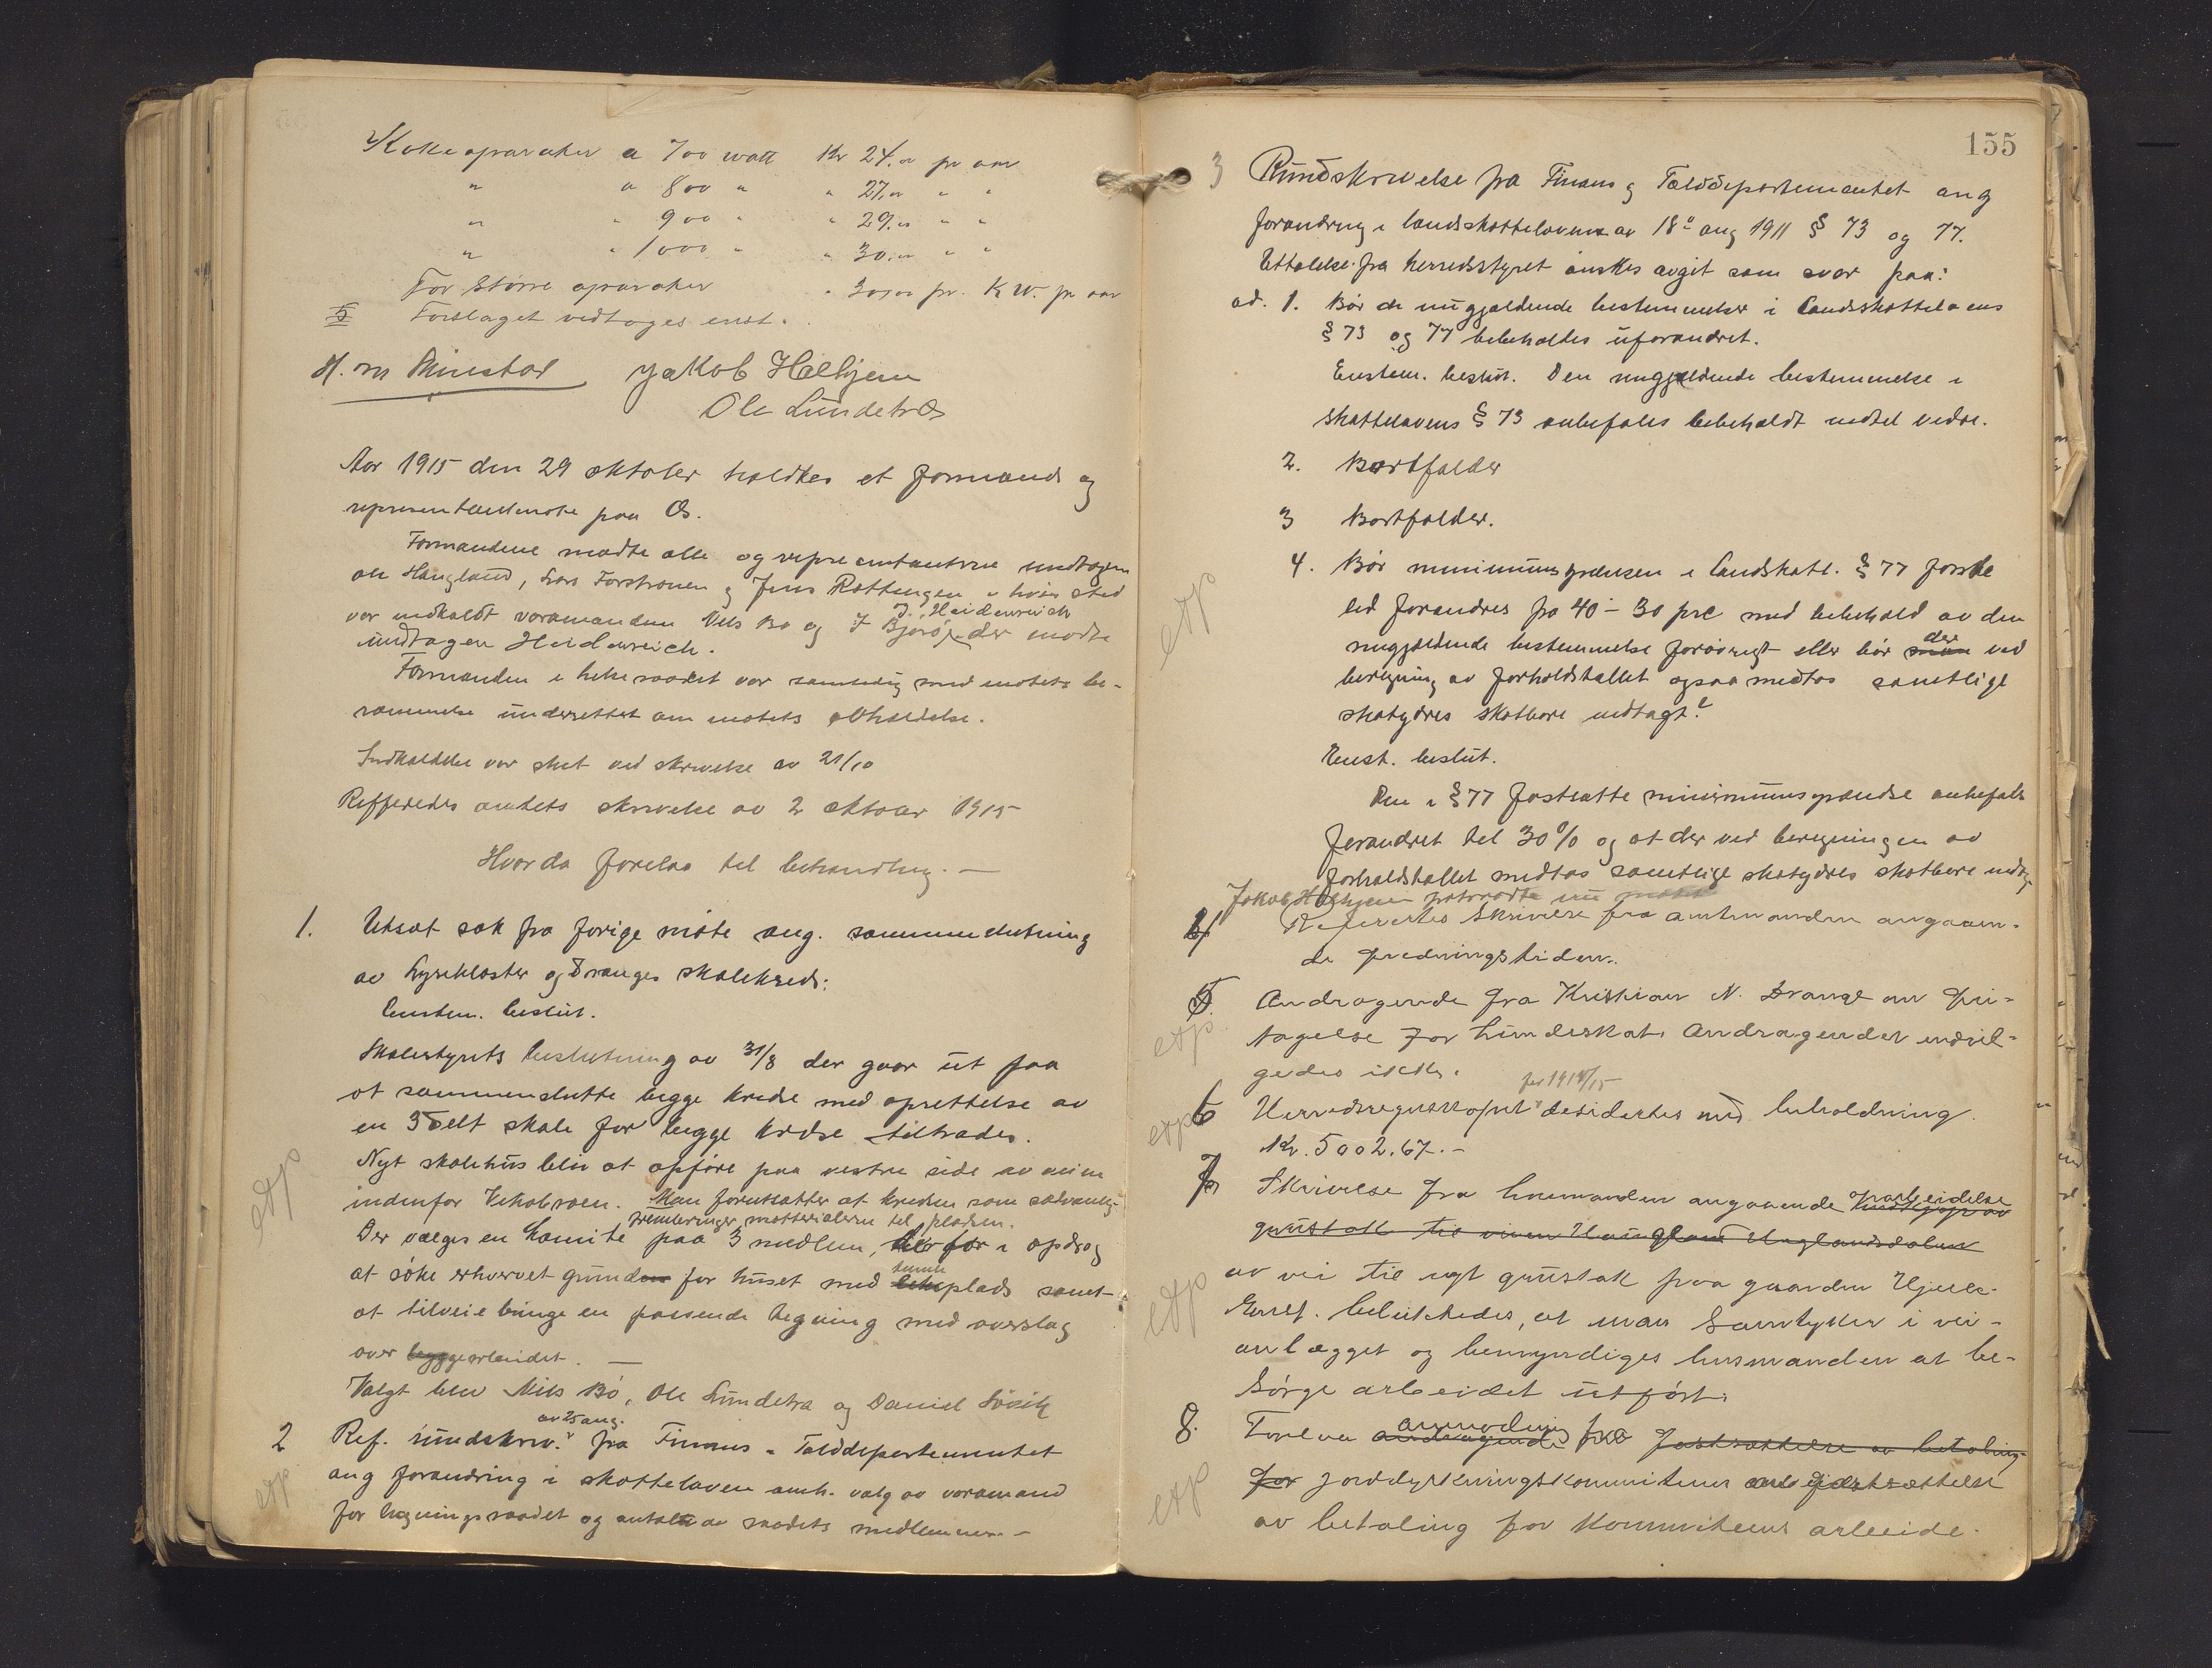 Kokeaparater a 700 watt Kr 24.00 pr aar
" a 800 " " 27,00 " "
" " 900 " " 29.00 " "
" " 1000 " " 30.00 " "
For större aparater " 30,00 pr. K.W. pr aar
5 Forslaget vedtoges enst.
H. M. Jakob Hælhjem
Ole Lundetræ
Aar 1915 den 29 oktober holdtes et formands og
representantmøte paa Os.
Formændene mødte alle og representanterne undtagen
Ole Haugland, Lars Forstrønen og Jens Røttingen i hvis sted
J. Heidenreich
var indkaldt varamændene Nils Bø og der mødte
undtagen Heidenreich.
Formanden i helseraadet var samtidig med møtets be-
rammelse underrettet om møtets avholdelse.
Indkaldelse var sket ved skrivelse av 21/10
Refferedes amtets skrivelse av 2 oktober 1915
Hvorda forelaa til behandling. —
1. Utsat sak fra forige møte ang. sammenslutning
av Lysekloster og Dranges skolekreds:
Enstem. beslut.
Skolestyrets beslutning av 31/8 der gaar ut paa
at sammenslutte begge kredse med oprettelse av
en 3delt skole for begge kredse tiltrædes.
Nyt skolehus blir at opføre paa vestre side av veien
indenfor . Man forutsætter at kredsen som sædvanlig
frembringer matterialerne til pladsen.
Der vælges en komite paa 3 medlem, der faar i opdrag
at söke erhvervet grund for huset med tomteplads samt
at tilveiebringe en passende tegning med overslag
over byggearbeidet. —
Valgt blev Nils Bö, Ole Lundetræ og Daniel Søvik
av 25 aug.
2 Ref. rundskriv. fra Finans & Tolddepartementet
ang forandring i skatteloven anh. valg av varamænd
for ligningsraadet og antalet av raadets medlemmer. —
155
3 Rundskrivelse fra Finans og Tolddepartementet ang
forandring i landskatteloven av 18 aug 1911 § 73 og 77.
Uttalelse fra herredsstyret önskes avgit som svar paa:
ad. 1. Bör de nugjældende bestemmelser i landsskattelovens
§ 73 og 77 bebeholdes uforandret.
Enstem. beslut. Den nugjældende bestemmelse i
skattelovens § 73 anbefales bebeholdt indtil videre.
2. Bortfalder
3 Bortfalder.
4. Bör minimumsgrænsen i landskatl. § 77 første
led forandres fra 40 – 30 prc med bebehold av den
nugjældende bestemmelse forövrigt eller bör der ved
beregning av forholdstallet ogsaa medtas samtlige
skatydres skatbare indtægt?
Enst. beslut.
Den i § 77 fastsatte minimumsgrændse anbefales
forandret til 30% og at der ved beregningen av
forholdstallet medtas samtlige skatydres skatbare indtægt
Jakob Hælhjem nu mötet
4 Referertes skrivelse fra amtmanden angaaen-
de fredningstiden.
5. Andragende fra Kristian N. Drange om fri-
tagelse for hundeskat. Andragendet indvil-
gedes ikke.
for 1914/15
6 Herredsregnskapet desidertes med beholdning
Kr. 5002.67.-
7 Skrivelse fra lensmanden angaaende oparbeidelse
grustak til veien Haugland Uglandsdalen
av vei til nyt grustak paa gaarden Hjelle.
Enst. beluttedes, at man samtykker i vei-
anlægget og bemyndiges lensmanden at be-
sörge arbeidet utført.
8. Forelaa anmodning fra fastsættelse av betaling
for jorddyrkningskommiteen om fastsættelse
av betaling for kommiteens arbeide.